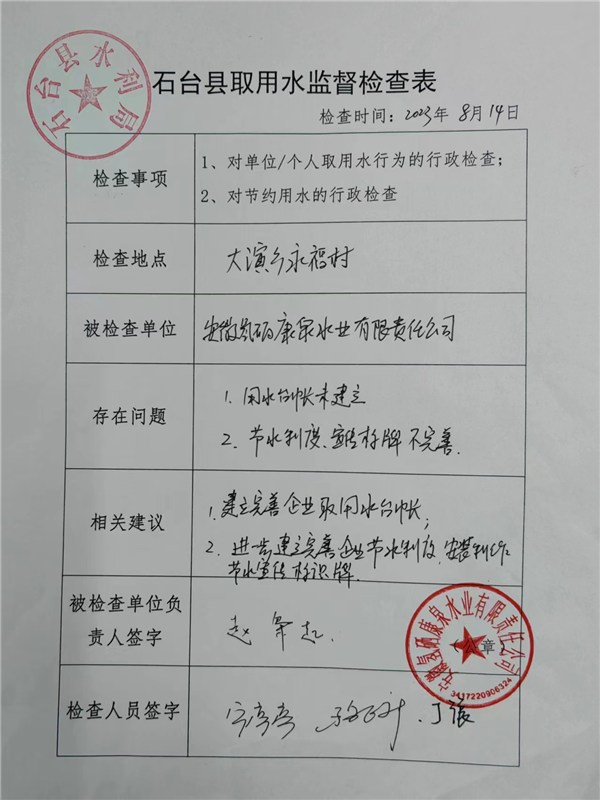 石台县水利局
石台县取用水监督检查表
检查时间：2023年 8月14日
检查事项
1、对单位/个人取用水行为的行政检查；
2、对节约用水的行政检查
检查地点
大演乡永福村
被检查单位
安徽 硒康泉水业有限责任公司
存在问题
1. 用水台帐未建立
2. 节水制度、宣传标牌不完善.
相关建议
1. 建立完善企业取用水台帐；
2. 进一步建立完善企业节水制度，安装制作
节水宣传标识牌.
被检查单位负
责人签字
赵军
（公章）
硒康泉水业有限责任公司
3417220906324
检查人员签字
丁